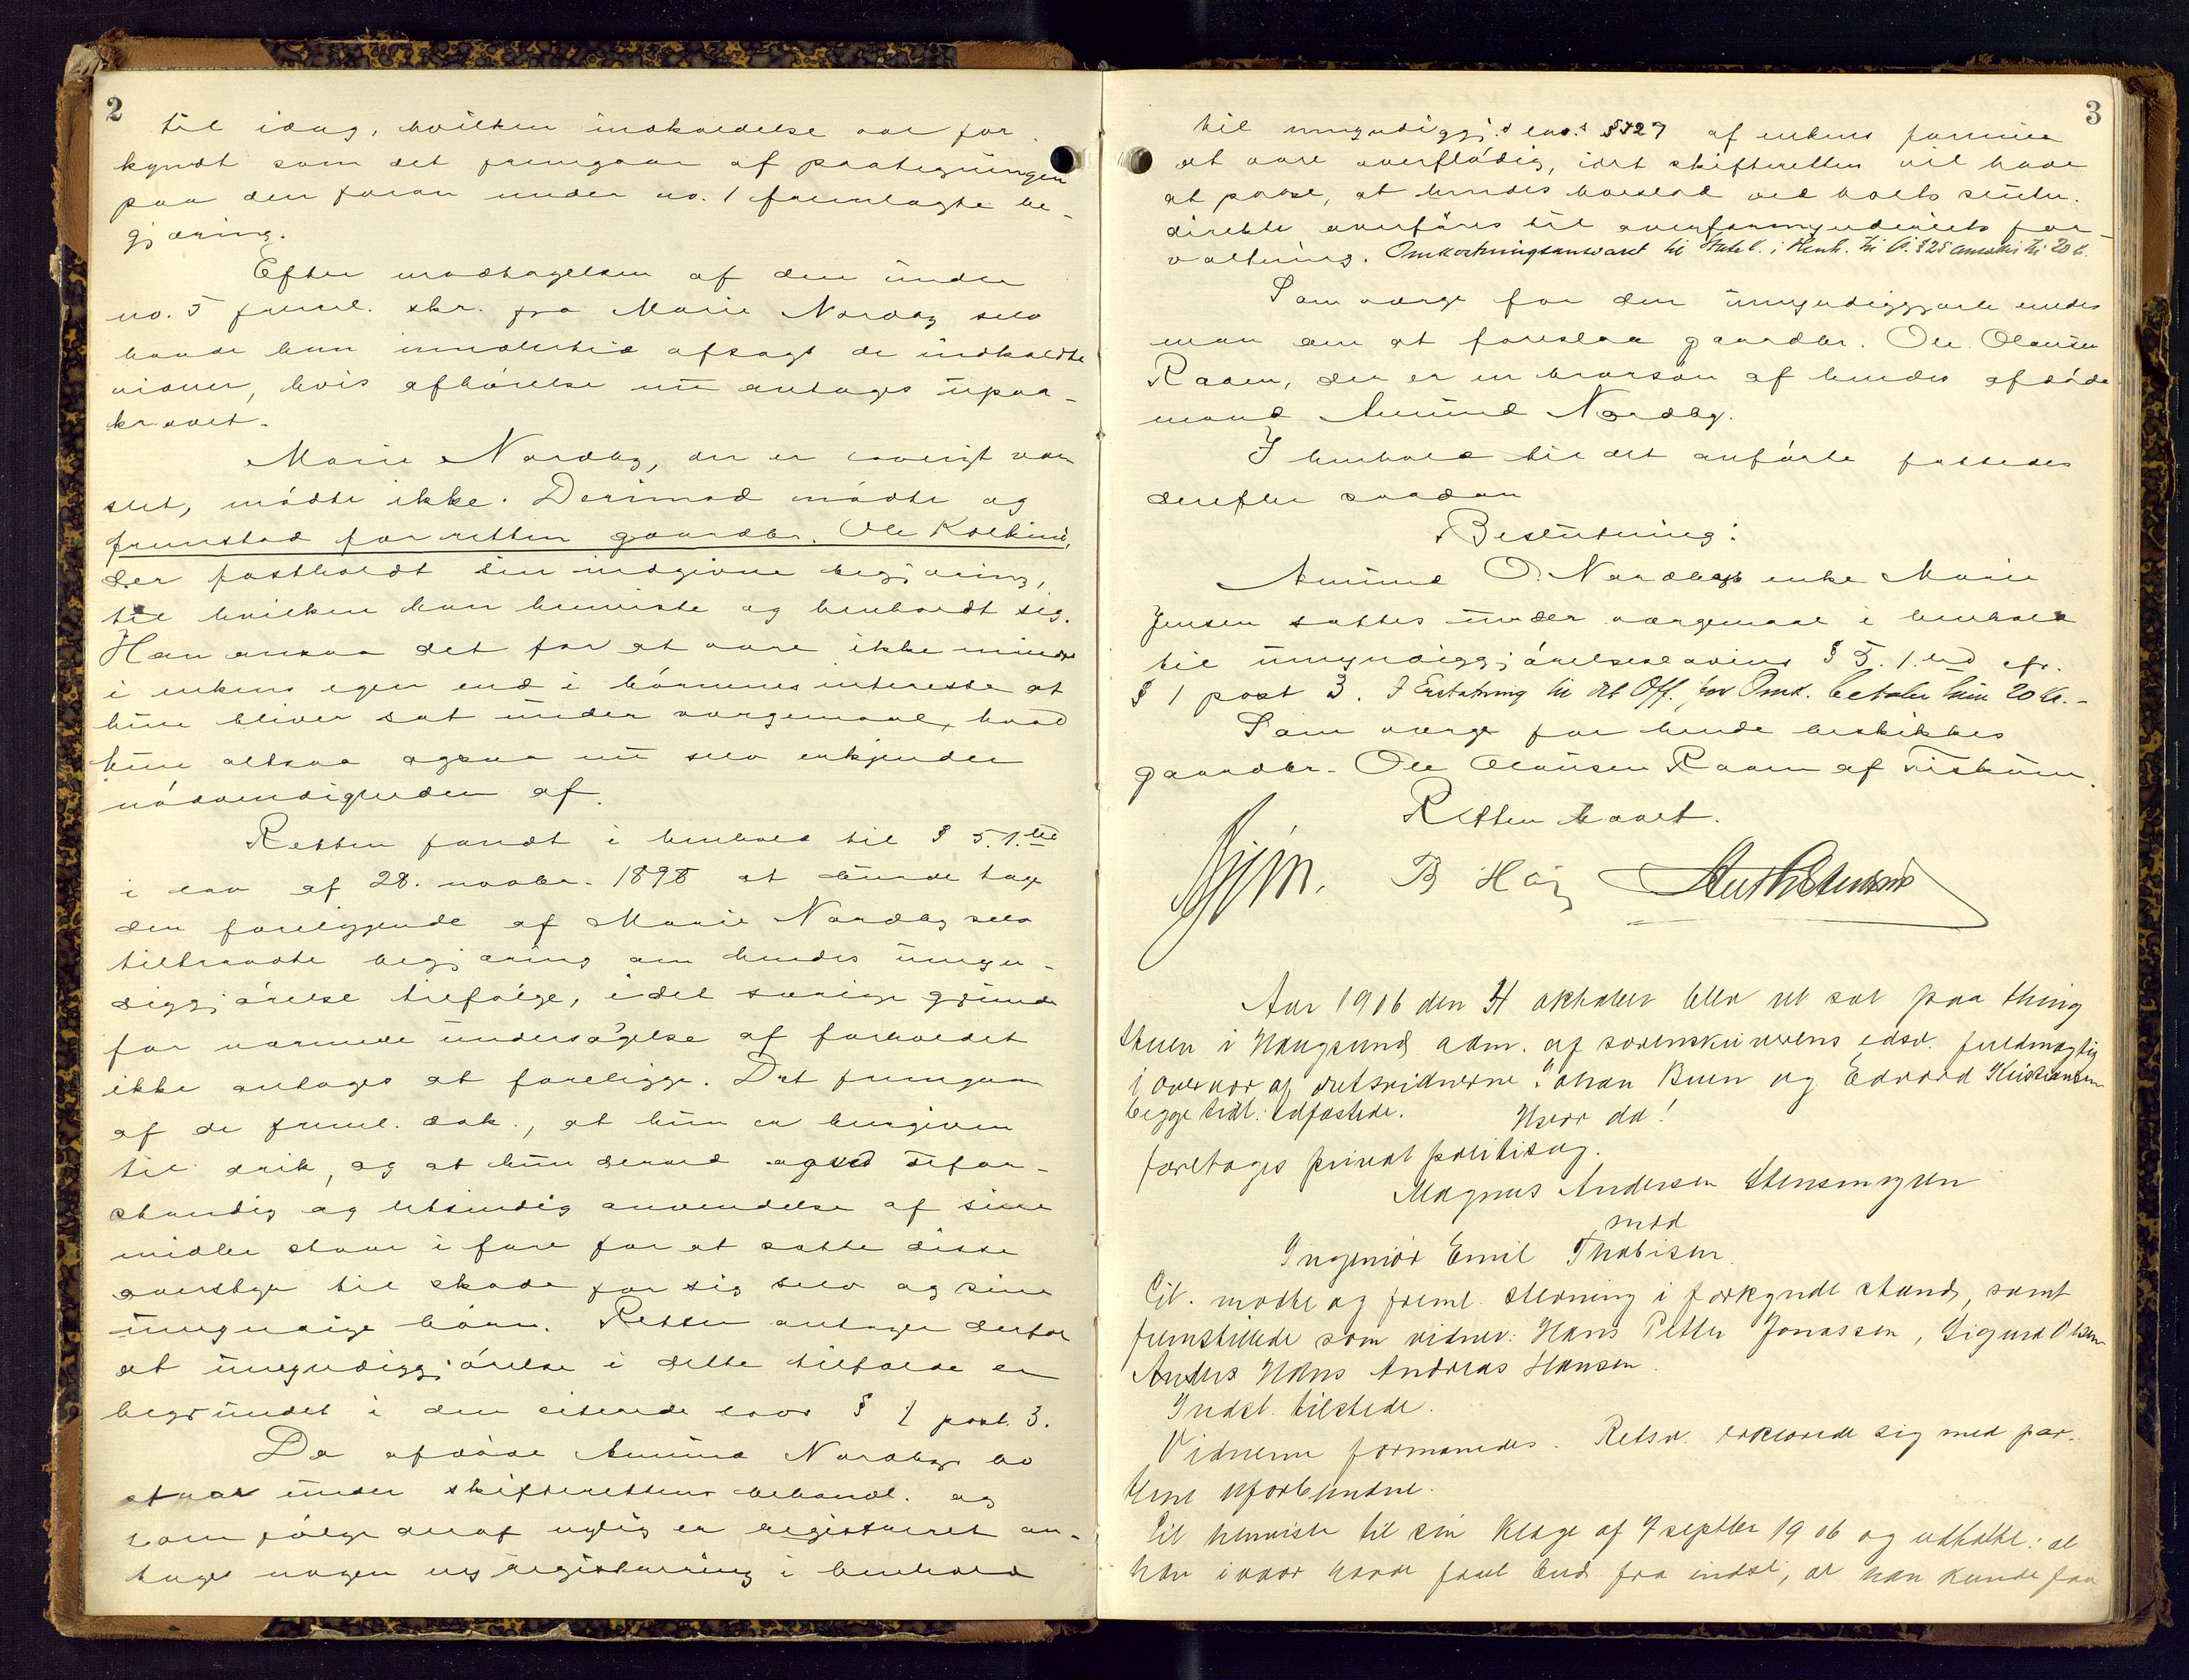 2
til idag, hvilken indkaldelse var for
kyndt som det fremgaar af paategningen
paa den foran under no. 1 fremlagte be-
gjæring.
Efter modtagelsen af den under
no. 5 freml. skr. fra Marie Nordby selv
havde han imidlertid afsagt de indkaldte
vidner, hvis afhørelse nu antages upaa-
krævet.
Marie Nordby, der er lovligt var
slet, mødte ikke. Derimod mødte og
fremstod for retten gaardbr. Ole Kolkind,
der fastholdt sin indgivne begjæring,
til hvilken han henviste og henholdt sig.
Han ansaa det for at være ikke mindre
i enkens egen end i børnenes interesse at
hun bliver sat under værgemaal, hvad
hun altsaa ogsaa nu selv erkjender
nødvendigheden af.
Retten fandt i henhold til § 5. 1. led
i lov af 28. novbr. 1898 at burde tage
den foreliggende af Marie Nordby selv
tiltraadte begjæring om hendes umyn-
diggjørelse tilfølge, idet særlige grunde
for nærmere undersøgelse af forholdet
ikke antages at foreligge. Det fremgaar
af de freml. dok., at hun er hengiven
til drik, og at hun derved og ved ufor-
standig og letsindig anvendelse af sine
midler staar i fare for at sætte disse
overstyr til skade for sig selv og sine
umyndige børn. Retten antager derfor
at umyndiggjørelse i dette tilfælde er
begrundet i den citerede lovs § 1 post 3.
Da afdøde Amund Nordbys bo
staar under skifterettens behandl. og
som følge deraf nylig er registreret an-
tages nogen ny registrering i henhold
3
til umyndiggj.s lov.s § 27 af enkens formue
at være overflødig, idet skifteretten vil have
at paase, at hendes boeslod ved boets slutn.
direkte overføres til overformynderiets for-
valtning. Omkostningsansvaret til Statsk. i Henh. til L. § 25 ansættes til 20 k.
Som værge for den umyndiggjorte enedes
man om at foreslaa gaardbr. Ole Olausen
Raaen, der er en brorsøn af hendes afdøde
mand Amund Nordby.
I henhold til det anførte fattedes
derefter saadan
Beslutning:
Amund O. Nordbys enke Marie
Jensen sættes under værgemaal i henhold
til umyndiggjørelseslovens § 5. 1. led cfr.
§ 1 post 3. I Erstatning til det Off. for Omk. betaler hun 20 Kr.-
Som værge for hende beskikkes
gaardbr. Ole Olausen Raaen af Fiskum.
Retten hævet.
B Høy
Aar 1906 den 4 oktober blev ret sat paa thing
stuen i Haugsund adm. af sorenskriverens edsv. fuldmægtig
i overvær af retsvidnerne Johan Buen og Edvard Kristiansen
begge tidl. edfæstede.
Hvor da!
foretages privat politisag.
Magnus Andersen Stensmyren
mod
Ingeniør Emil Thobisen.
Cit. mødte og freml. stevning i forkyndt stand, samt
fremstillede som vidner: Hans Petter Jonassen, Sigurd Olsen
Anders Hans Andreas Hansen.
Indst. tilstede.
Vidnerne formanedes. Retsv. erklærede sig med par-
terne uforbundne.
Cit henviste til sin klage af 7 septbr 1906 og udtalte: at
han ivaar havde faaet bud fra indst, at han kunde faa